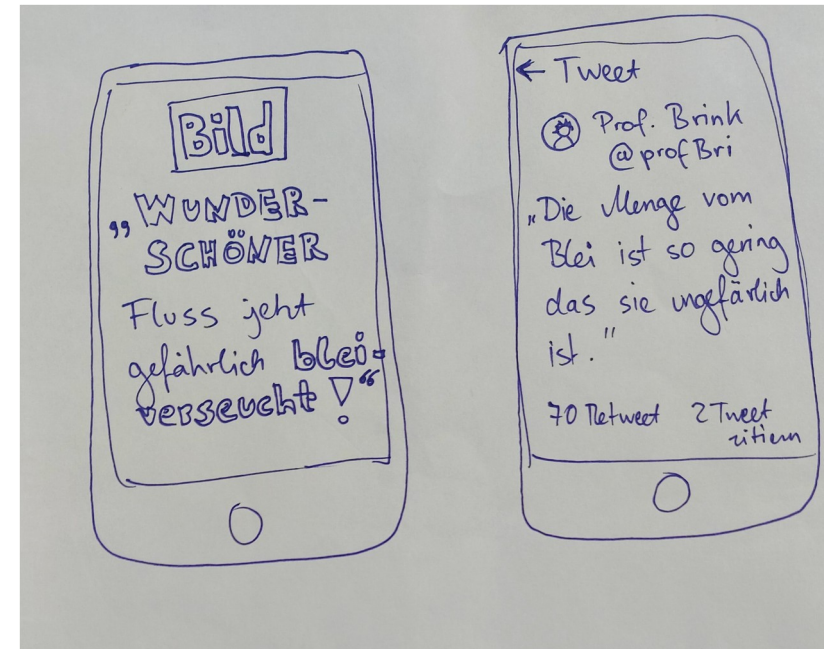 Bild
„WUNDER-
SCHÖNER
Fluss jeht
gefährlich blei-
verseucht!“
← Tweet
Prof. Brink
@profBri
„Die Menge vom
Blei ist so gering
das sie ungefärlich
ist."
70 Retweet 2 Tweet
zitiern